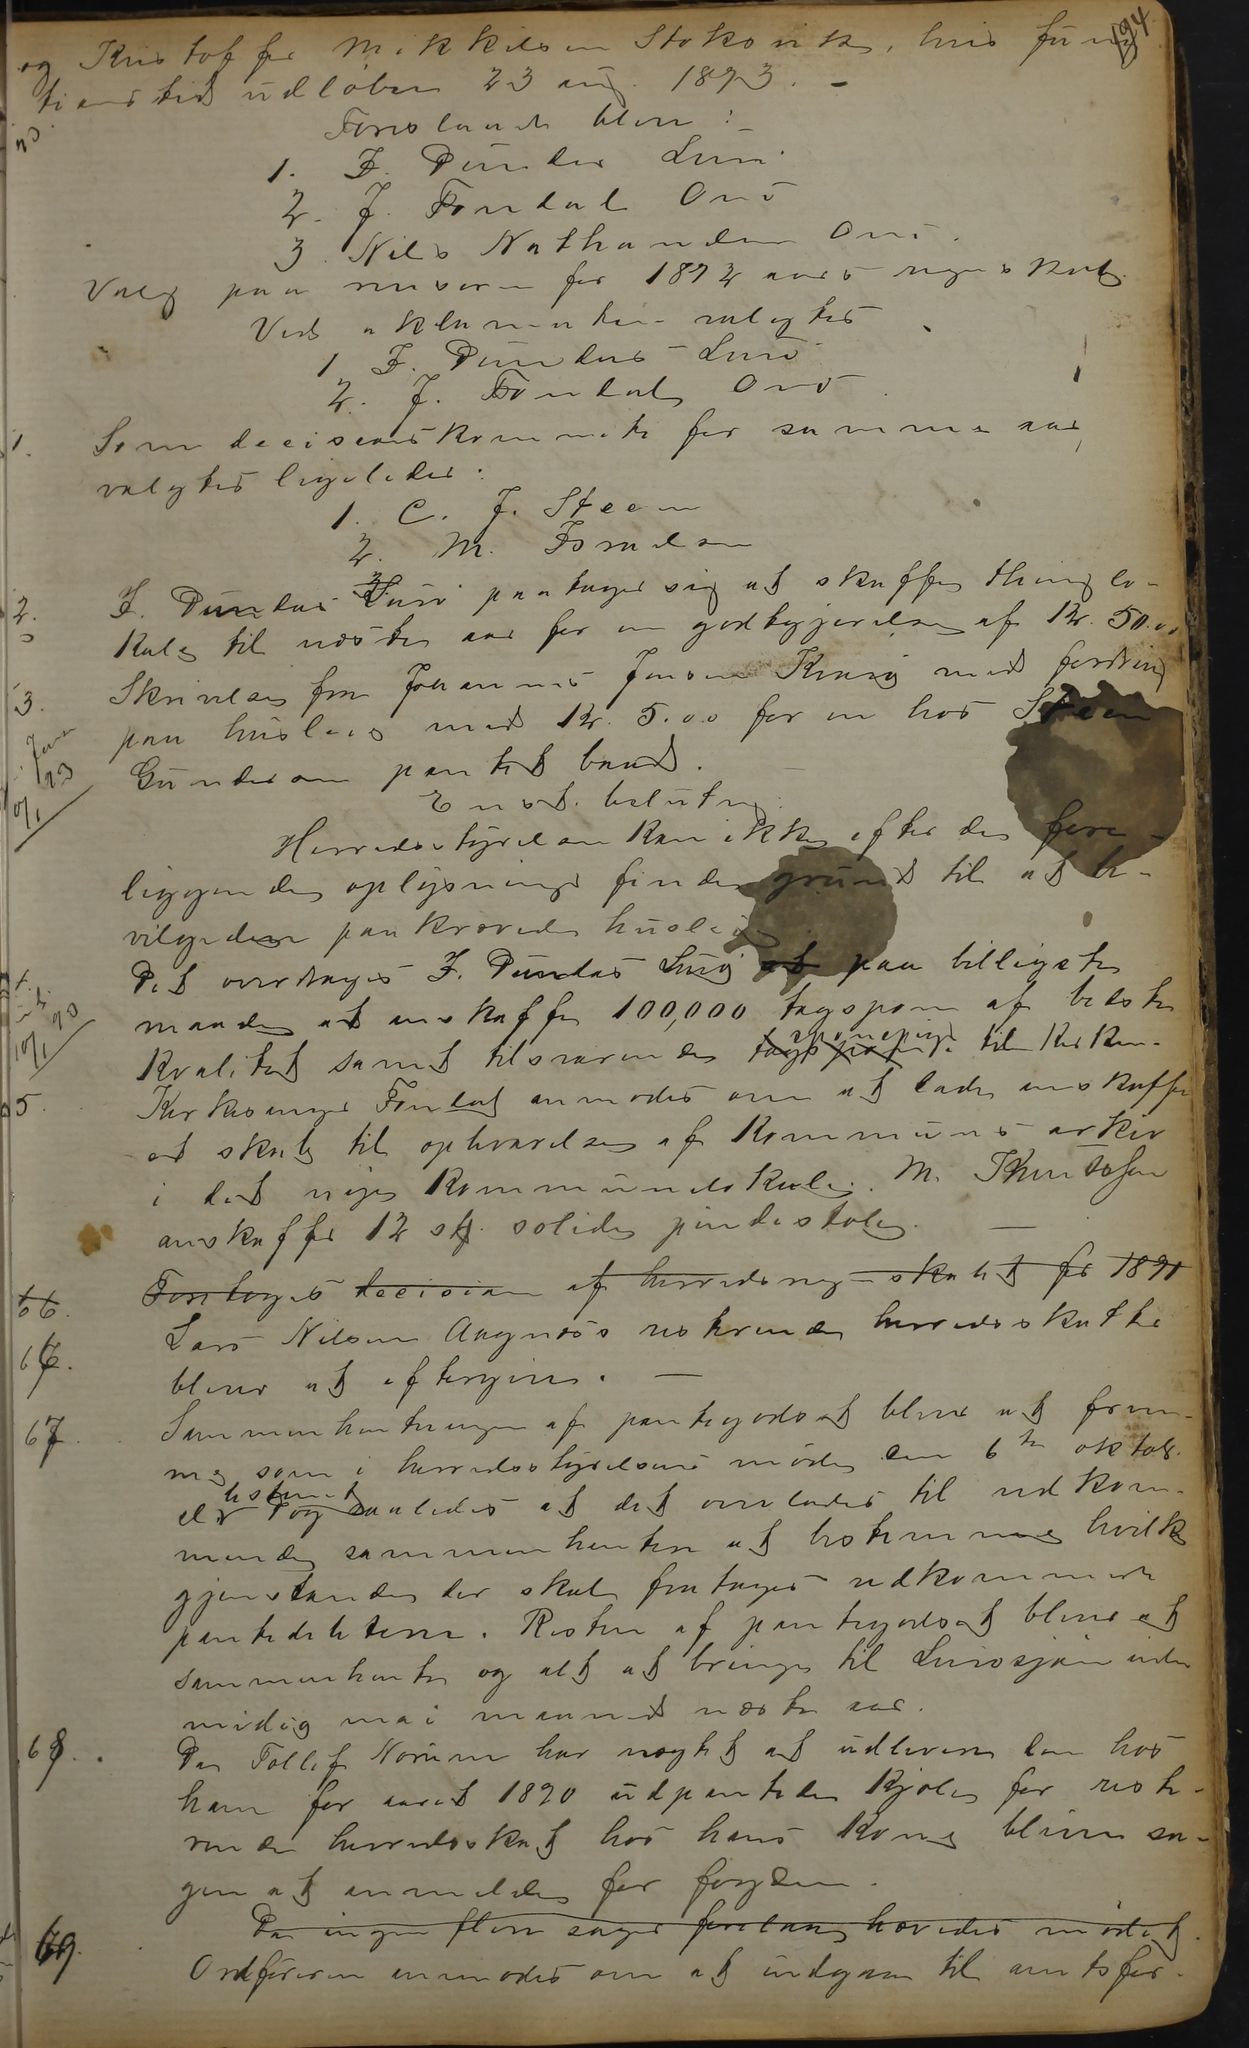 194
og Kristoffer Mikkelsen Stokvik, hvis funk
tionstid udløber 23 aug. 1893. –
Foreslaaede blev :
1. Z. Dundas Lurø
2. J. Fondal Onø
3. Nils Nathanelsen Onø.
Valg paa revisorer for 1892 aars regnskab.
Ved aklamation valgtes
1 Z. Dundas Lurø
2. J. Fondal, Onø
1. Som decisionskommite for samme aar,
valgtes ligeledes :
1. C. J. Steen
2. M. Israelsen
2. Z. Dundas Lurø paatager sig at skaffe thinglo-
kale til næste aar for en godtgjørelse af Kr. 50.00
3. Skrivelse fra Johannes Jensen med fordring
paa husleie med Kr. 5.00 for en hos Steen
Gundersen pantet baad. –
Enst. beslutning:
Herredsstyrelsen kan ikke efter de fore-
liggende oplysninger finde grund til at be-
vilge den paakrævede husleie
Det overdrages Z. Dundas Lurø at paa billigste
maade at anskaffe 100,000 tagspon af bedste
kvalitet samt tilsvarende tagspon sponspiger til kirken.
5. Kirkesanger Fondal anmodes om at lade anskaffe
et skab til opbevarelse af kommunens arkiv
i det nye kommunelokale. M.
anskaffer 12 stk. solide pindestole. –
66. Foretoges decision af herredsregnskabet for 1891
66. Lars Nilsen Aagnæs resterende herredsskatte
bliver at eftergive. –
67. Sammenhentningen af pantegodset bliver at frem-
me som i herredsstyrelsens møde den 6te oktob.
bestemt og saaledes at det overlades til vedkom-
mende sammenhenter at bestemme hvilke
gjenstande der skal fratages vedkommende
pantedebitorer. Resten af pantegodset bliver at
sammenhente og alt at bringe til Lurøsjøen inden
midig mai maaned næste aar.
68. Da Tollef Norum har nægtet at udlevere den hos
ham for aaret 1890 udpantede kjole for reste-
rende herredsskat hos hans kone bliver sa-
gen at anmelde for fogden.
Da ingen flere sager forelaa, hævedes mødet.
69. Ordføreren anmodes om at indgaa til amtsfor-